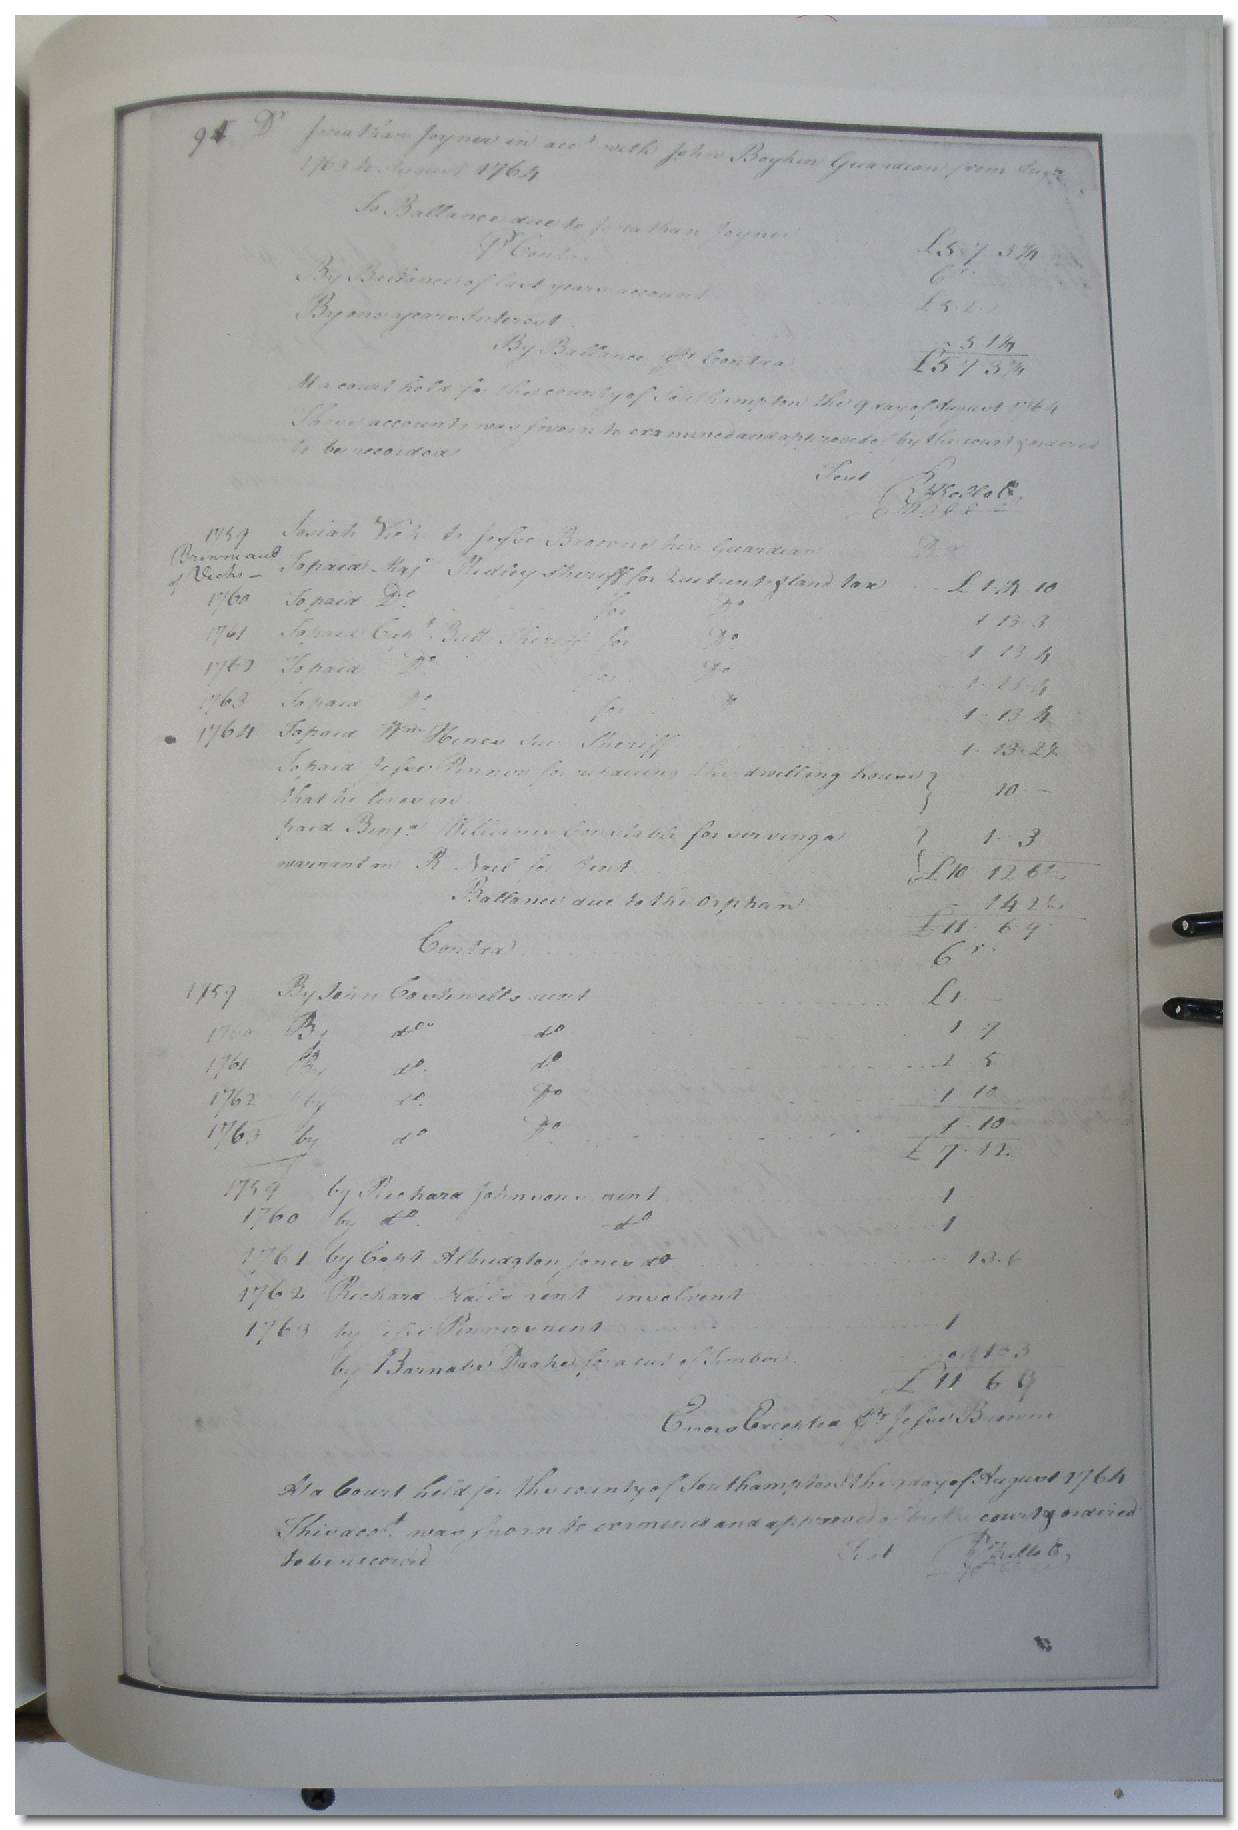 94 Dr Jonathan Joyner in acct with John Boykin Guardian from Augst
1763 to August 1764
To Ballance due to Jonathan Joyner £5 7 3¼
Pr Contra Cr
By Ballance of last years account £5 2
By one years Interest 5 1¼
By Ballance Pr Contra £5 7 3¼
At a court held for the county of Southampton the 9 day of August 1764
These accounts was sworn to examined and approved of by the court & ordered
to be recorded
Test
1759 Josiah Vick to Jesse Browne his Guardian Dr
Browne acct
of Vicks
To paid Maj Ridley sheriff for quitrents & land tax £ 1 14 10
1760 To paid Do for Do 1 13 3
1761 To paid Capt Britt Sheriff for Do 1 13 4
1762 To paid Do for Do 1 13 4
1763 To paid Do for Do 1 13 4
1764 To paid Wm Hines Sheriff 1 13 2½
To paid Jesse Pinner for repairing the dwelling house
that he lives in 10
paid Benja Williams Constable for serving a 1 3
warrant on R Nail for rent £10 12 6½
Ballance due to the Orphan 14 2½
£11 6 9
Contra Cr
1759 By John Cashwells rent £1
1760 By do do 1 7
1761 By do do 1 5
1762 by do Do 1 10
1763 by do Do 1 10
£ 7 12
1759 by Richard Johnsons rent 1
1760 by do do 1
1761 by Capt Albridgton Jones do 13 6
1762 Richard Nails rent insolvent
1763 by Jesse Pinners rent 1
by Barnaba Drake for a cut of timber 1 3
£ 11 6 9
Errors Excepted Pr Jesse Browne
At a Court held for the county of Southampton the 9 day of August 1764
This acct was sworn to exermined and approved of by the court & ordered
to be record
Test